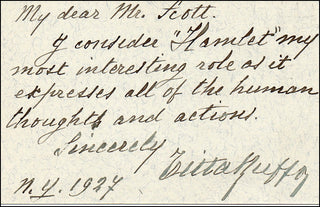 My dear Mr. Scott.
I consider "Hamlet" my
most interesting role as it
expresses all of the human
thoughts and actions.
Sincerely
Titta Ruffo
N.Y. 1927